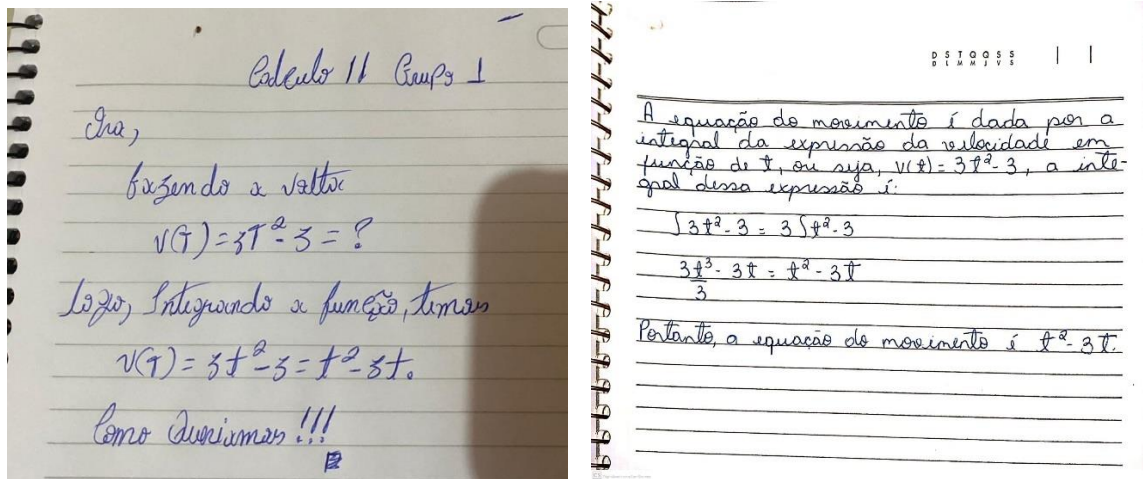 Calculo II Grupo 1
Ora,
fazendo a volta
v(T) = 3T² - 3 = ?
Logo, Integrando a função, temos
v(T) = 3t² - 3 = t² - 3t.
Como Queriamos!!!
D S T Q Q S S
D L M M J V S
A equação do movimento é dada por a
integral da expressão da velocidade em
função de t, ou seja, v(t) = 3t² - 3, a inte-
gral dessa expressão é:
∫3t² - 3 = 3∫t² - 3
3t³/3 - 3t = t² - 3t
Portanto, a equação do movimento é t² - 3t.